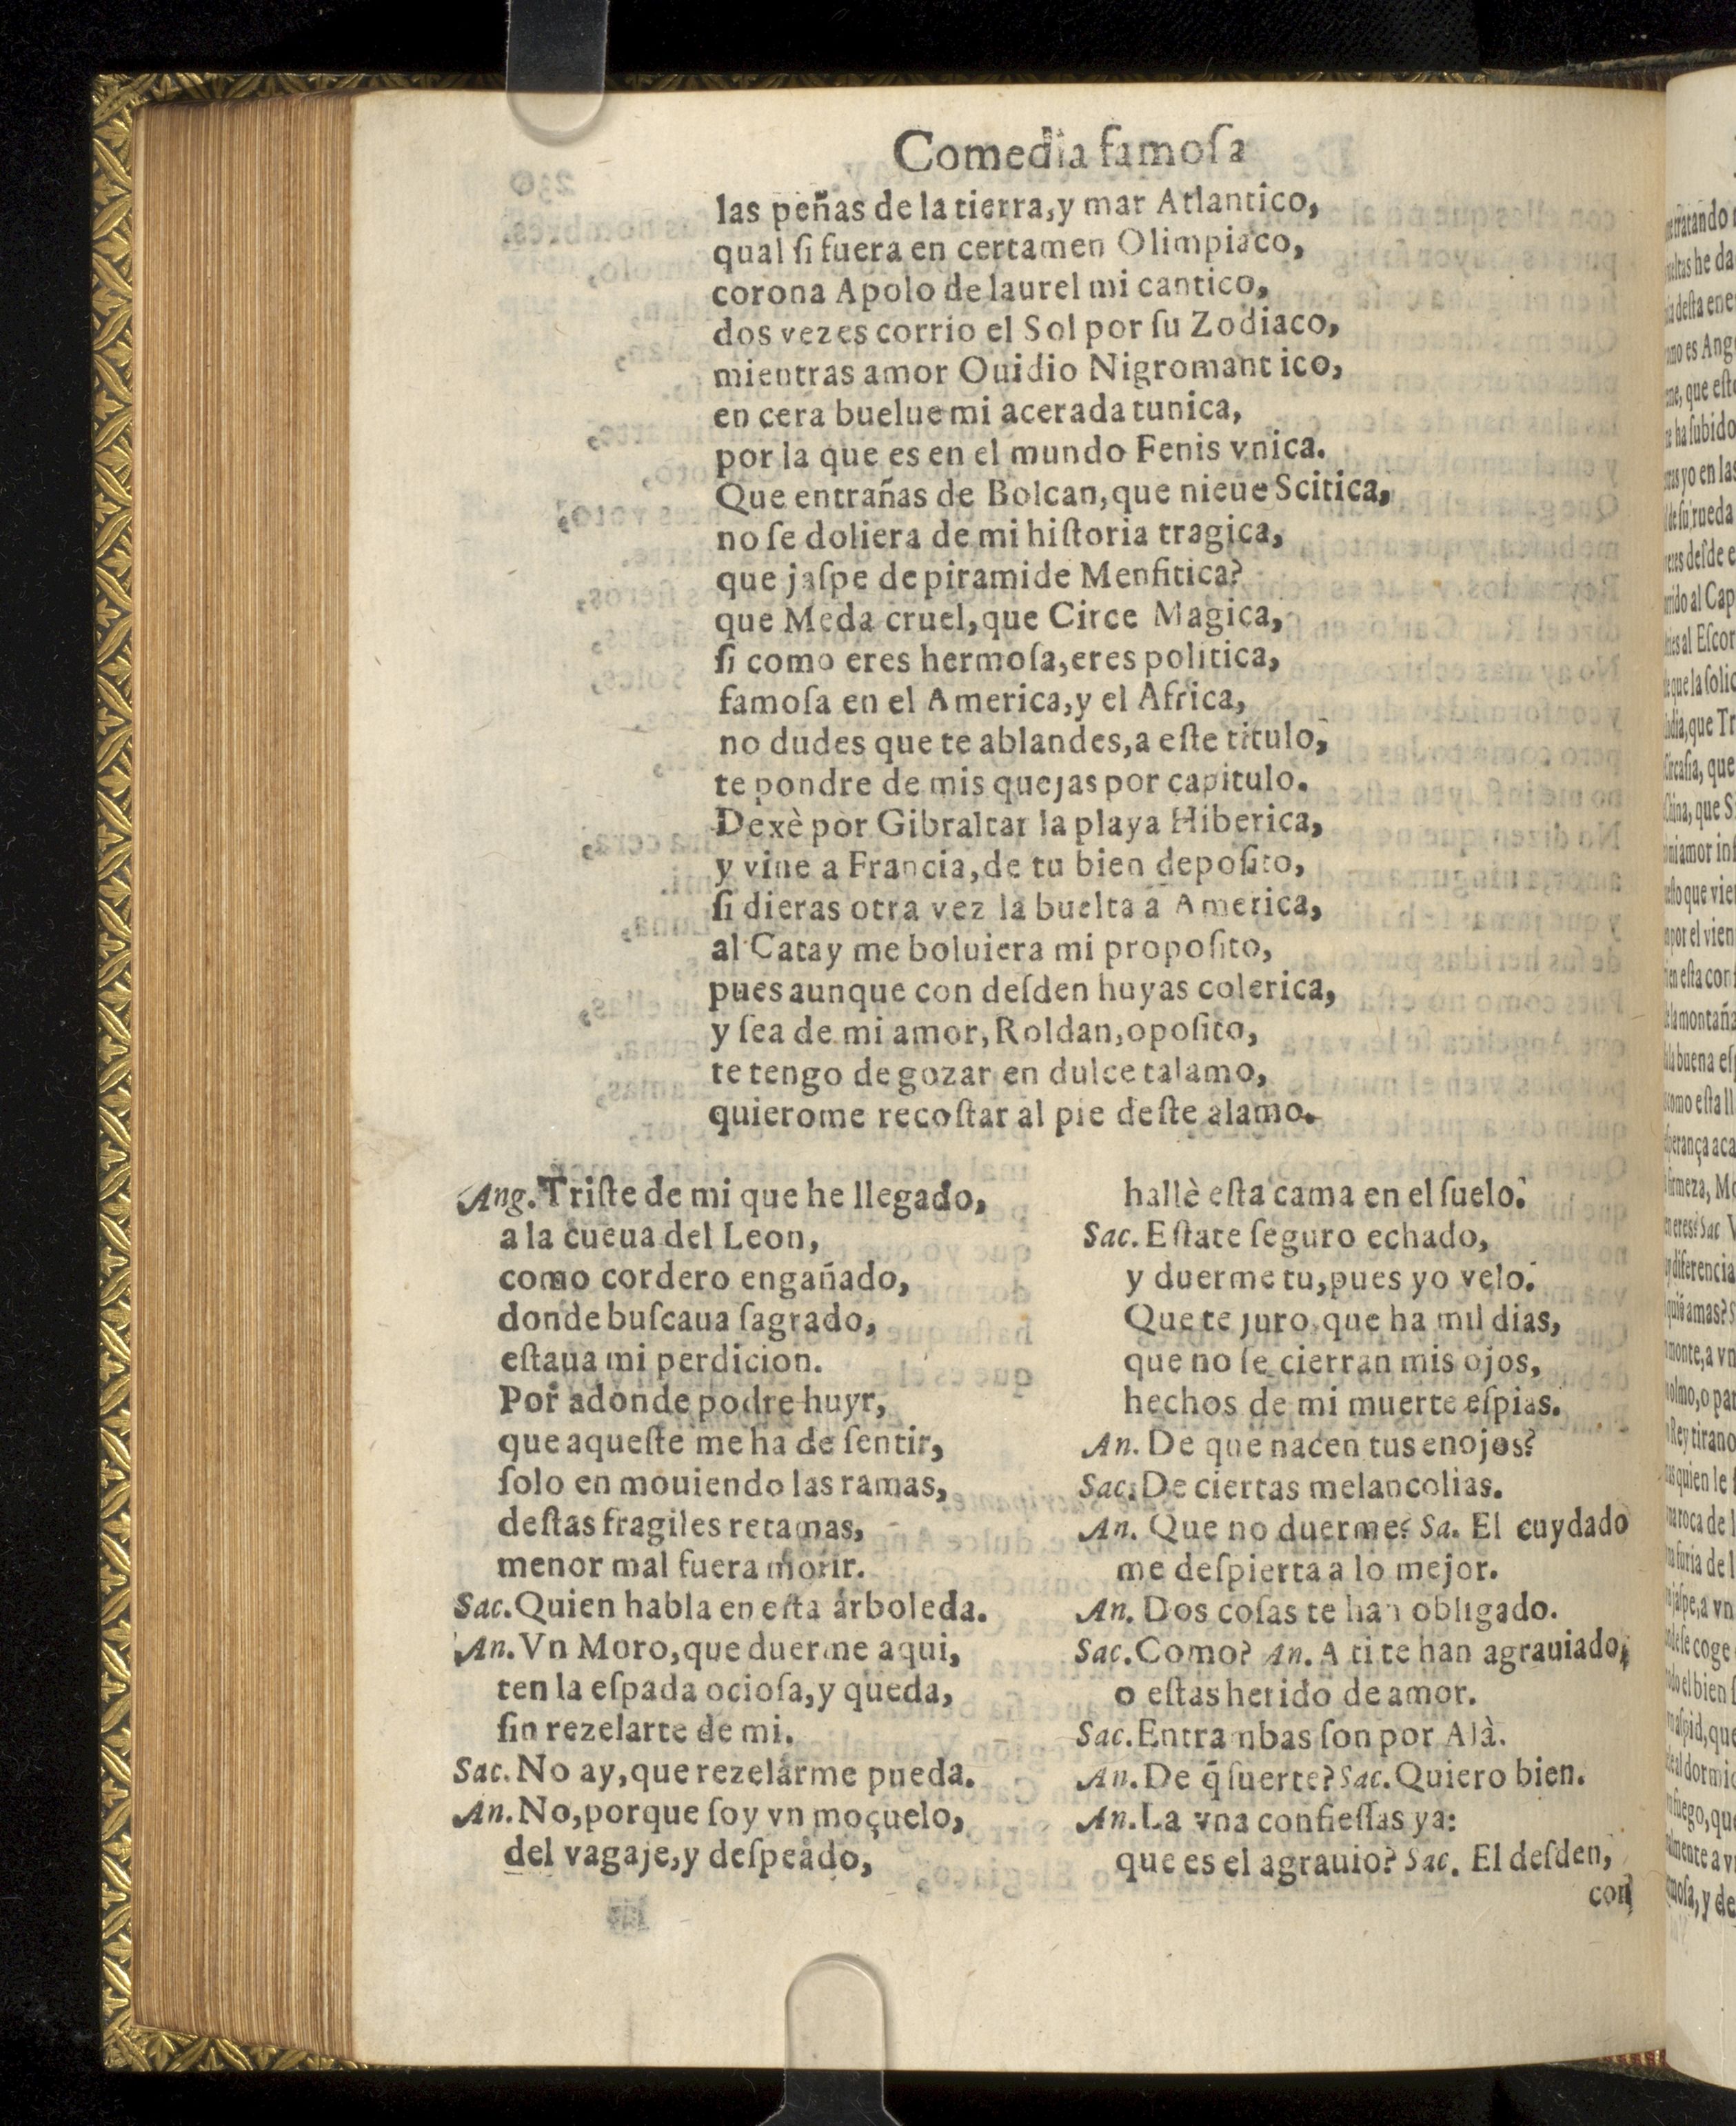 Comedia famoſa
las peñas de la tierra, y mar Atlantico,
qual ſi fuera en certamen Olimpiaco,
corona Apolo de laurel mi cantico,
dos vezes corrio el Sol por ſu Zodiaco,
mientras amor Ouidio Nigromantico,
en cera buelue mi acerada tunica,
por la que es en el mundo Fenis vnica.
Que entrañas de Bolcan, que nieue Scitica,
no ſe doliera de mi hiſtoria tragica,
que jaſpe de piramide Menfitica?
que Meda cruel, que Circe Magica,
ſi como eres hermoſa, eres politica,
famoſa en el America, y el Africa,
no dudes que te ablandes, a eſte titulo,
te pondre de mis quejas por capitulo.
Dexè por Gibraltar la playa Hiberica,
y vine a Francia, de tu bien depoſito,
ſi dieras otra vez la buelta a America,
al Catay me boluiera mi propoſito,
pues aunque con deſden huyas colerica,
y ſea de mi amor, Roldan, opoſito,
te tengo de gozar en dulce talamo,
quierome recoſtar al pie deſte alamo.
Ang. Triſte de mi que he llegado,
a la cueua del Leon,
como cordero engañado,
donde buſcaua ſagrado,
eſtaua mi perdicion.
Por adonde podre huyr,
que aqueſte me ha de ſentir,
ſolo en mouiendo las ramas,
deſtas fragiles retamas,
menor mal fuera morir.
Sac. Quien habla en eſta arboleda.
An. Vn Moro, que duerme aqui,
ten la eſpada ocioſa, y queda,
ſin rezelarte de mi.
Sac. No ay, que rezelarme pueda.
An. No, porque ſoy vn moçuelo,
del vagaje, y deſpeado,
hallè eſta cama en el ſuelo.
Sac. Eſtate ſeguro echado,
y duerme tu, pues yo velo.
Que te juro, que ha mil dias,
que no ſe cierran mis ojos,
hechos de mi muerte eſpias.
An. De que nacen tus enojos?
Sac. De ciertas melancolias.
An. Que no duerme? Sa. El cuydado
me deſpierta a lo mejor.
An. Dos coſas te han obligado.
Sac. Como? An. A ti te han agrauiado,
o eſtas herido de amor.
Sac. Entrambas ſon por Alà.
An. De q̃ ſuerte? Sac. Quiero bien.
An. La vna confieſſas ya:
que es el agrauio? Sac. El deſden,
con